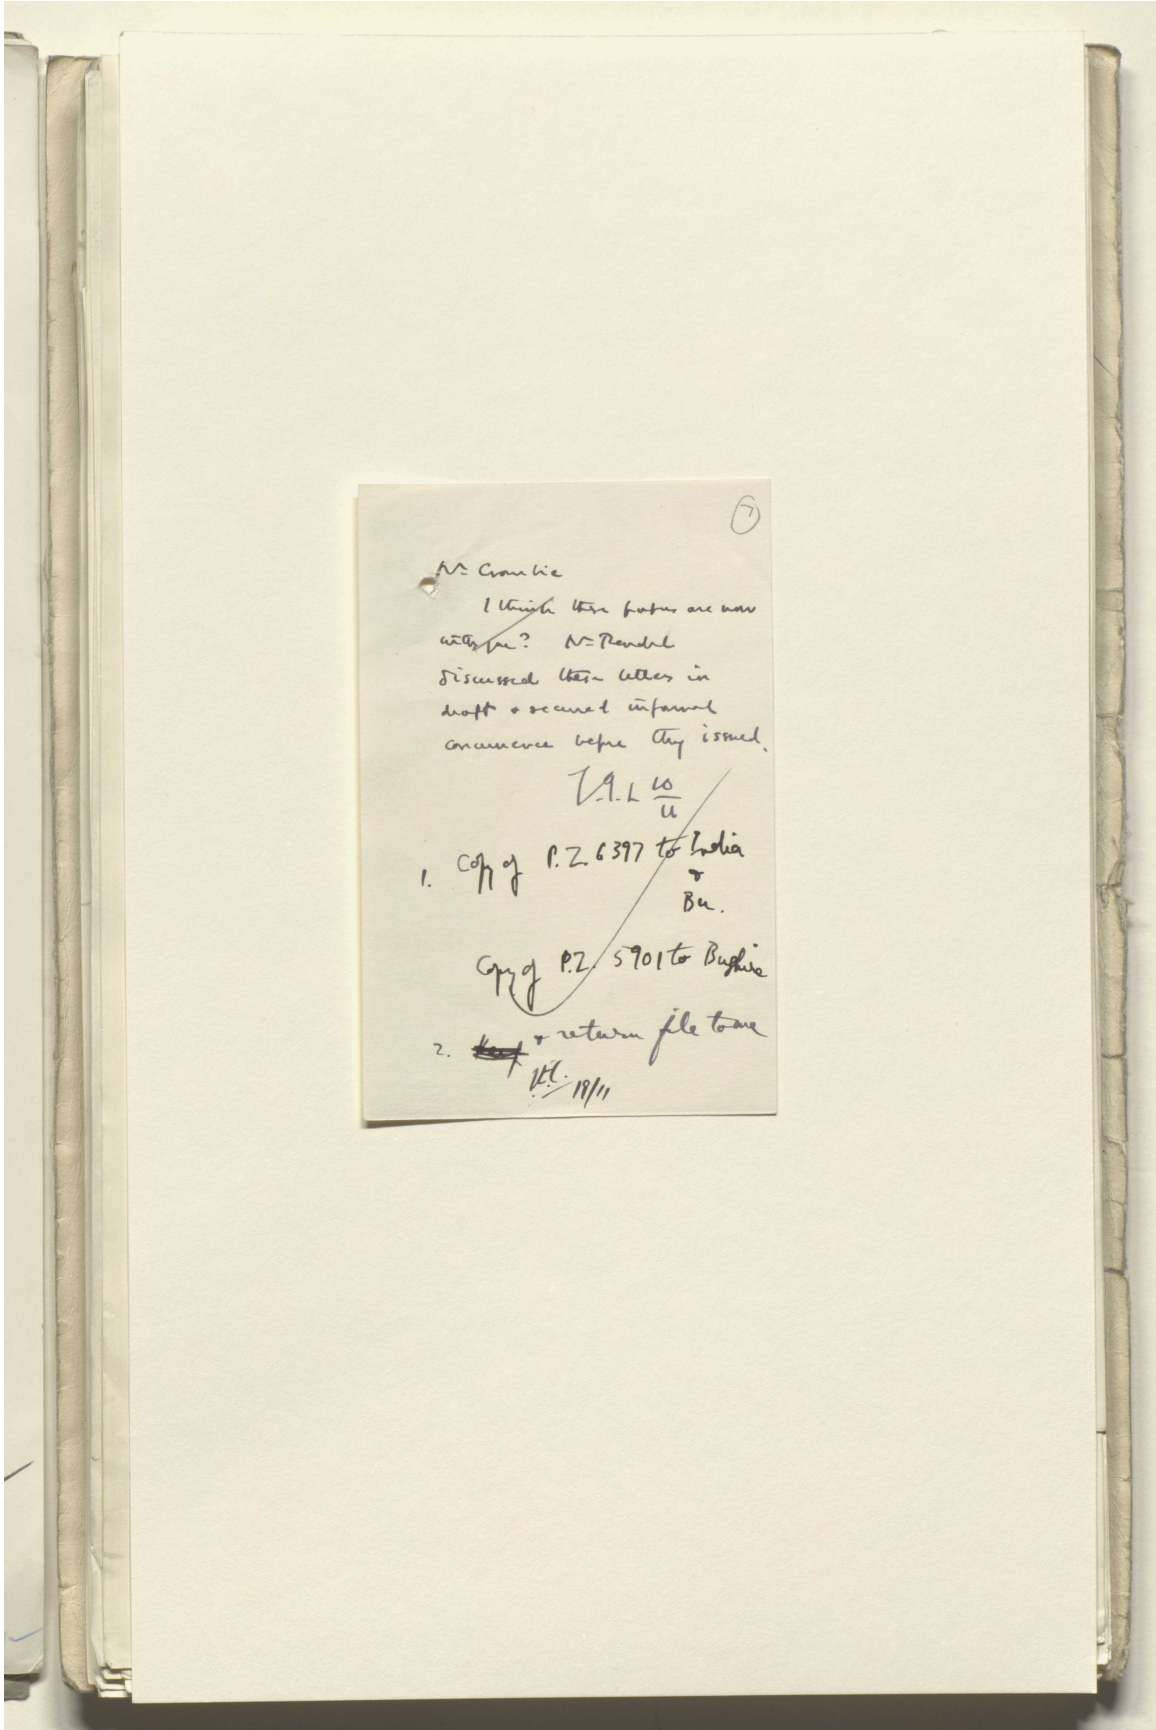 7
Mr Crombie
I think these papers are now
with you? Mr Rendel
discussed these letters in
draft & secured informal
concurrence before they issued.
10/11
1. Copy of P.Z. 6397 to India
&
Bu.
Copy of P.Z. 5901 to Bushire
2. & return file to me
18/11